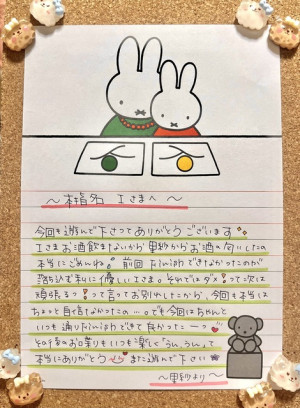 〜椎名 Iさまへ〜
今回も遊んで下さってありがとうございます
Iさまお酒飲まないから里紗からお酒の匂いしたの
本当にごめんね。前回Finishできなかったのが
落ち込む私に優しいIさま。それではダメ!って次は
頑張るっ!って言ってお別れしたから、今回も本当は
ちょっと自信なかったの…。でも今回はちゃんと
いつも通りFinishできて良かったーっ
Iさまのお口葉もいつも楽しくうん、うん。って
本当にありがとう また遊んで下さい
〜里紗より〜